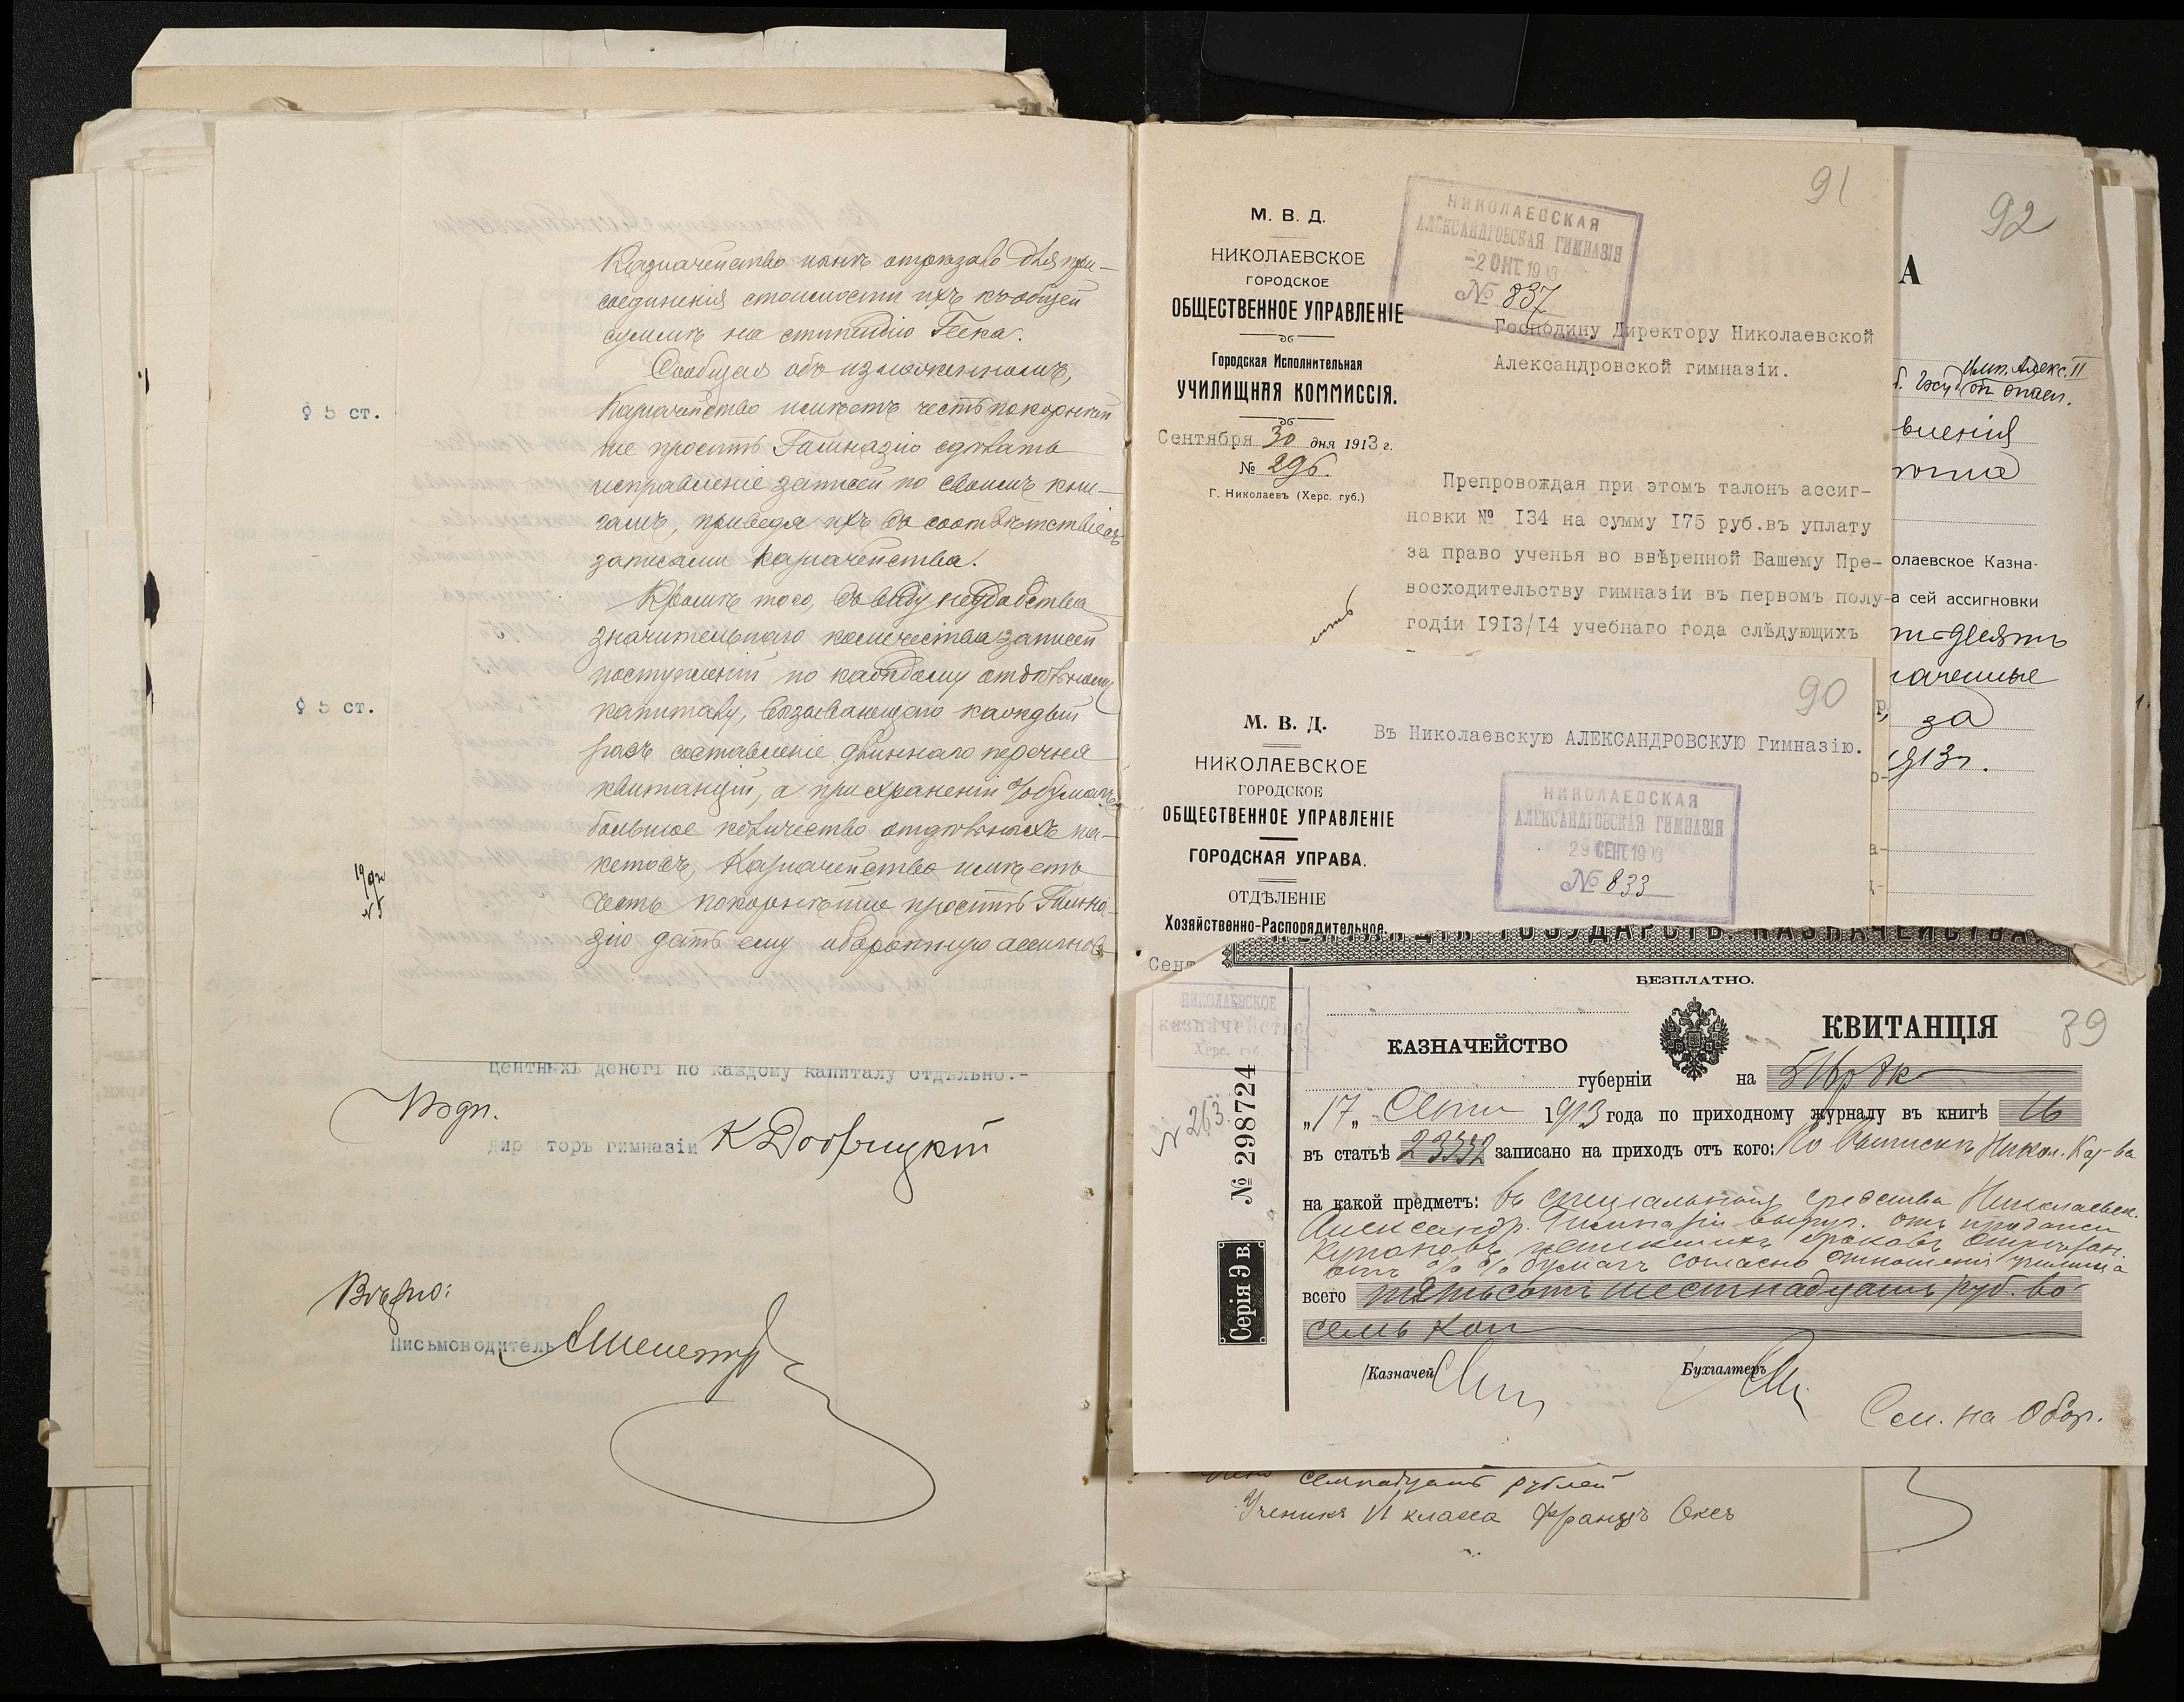 Казначейство нынѣ отрѣзало для при-
соединенія стоимости ихъ къ общей
суммѣ на стипендію Геека.
Сообщая объ изложенномъ,
Казначейство имѣетъ честь покорнѣй
ше просить Гимназію сдѣлать
исправленіе записей по своимъ кни-
гамъ, приведя ихъ въ соотвѣтствіе съ
записями Казначейства.
Кромѣ того, въ виду неудобства
значительнаго количества записей
поступленій по каждому отдѣльному
капиталу, вызывающаго каждый
разъ составленіе длиннаго перечня
квитанцій, а при храненіи % бумагъ
большое количество отдѣльныхъ па-
кетовъ, Казначейство имѣетъ
честь покорнѣйше просить Гимна-
зію дать ему оборотную ассигнов-
§ 5 ст.
§ 5 ст.
центныхъ денегъ по каждому капиталу отдѣльно.-
Подп.
Директоръ гимназіи
Вѣрно:
Письмоводитель
91
М. В. Д.
НИКОЛАЕВСКОЕ
ГОРОДСКОЕ
ОБЩЕСТВЕННОЕ УПРАВЛЕНІЕ
Городская Исполнительная
УЧИЛИЩНАЯ КОММИССІЯ.
Сентября 30 дня 1913 г.
№ 296.
Г. Николаевъ (Херс. губ.)
НИКОЛАЕВСКАЯ
АЛЕКСАНДРОВСКАЯ ГИМНАЗІЯ
-2 ОКТ. 1913
№ 837
Господину Директору Николаевской
Александровской гимназіи.
Препровождая при этомъ талонъ ассиг-
новки № 134 на сумму 175 руб.въ уплату
за право ученья во ввѣренной Вашему Пре-
восходительству гимназіи въ первомъ полу-
годіи 1913/14 учебнаго года слѣдующихъ
92
А
Имп. Алекс. II
вленія
олаевское Казна-
а сей ассигновки
наченные
за
1913г.
90
М. В. Д.
НИКОЛАЕВСКОЕ
ГОРОДСКОЕ
ОБЩЕСТВЕННОЕ УПРАВЛЕНІЕ
ГОРОДСКАЯ УПРАВА.
ОТДѢЛЕНІЕ
Хозяйственно-Распорядительное.
Сент
Въ Николаевскую АЛЕКСАНДРОВСКУЮ Гимназію.
НИКОЛАЕВСКАЯ
АЛЕКСАНДРОВСКАЯ ГИМНАЗІЯ
29 СЕНТ. 1913
№ 833
КВИТАНЦІЯ ГОСУДАРСТВ. КАЗНАЧЕЙСТВА
БЕЗПЛАТНО.
НИКОЛАЕВСКОЕ
казначейство
Херс. губ.
КАЗНАЧЕЙСТВО
КВИТАНЦІЯ
89
губерніи
на 516 р 8 к
„17„ Сент 1913 года по приходному журналу въ книгѣ 16
въ статьѣ 23352 записано на приходъ отъ кого: По выпискѣ Никол. Каз-ва
на какой предметъ: въ спеціальныя средства Николаевск.
Александр. Гимназіи выруч. отъ продажи
купоновъ
отъ % % бумагъ согласно отношенія
всего пятьсотъ шестнадцать руб. во-
семь коп
Казначей
Бухгалтеръ
См. на обор.
№ 263.
№ 298724
Серія Э в.
семнадцать рублей
Ученикъ VI класса Францъ Оксъ